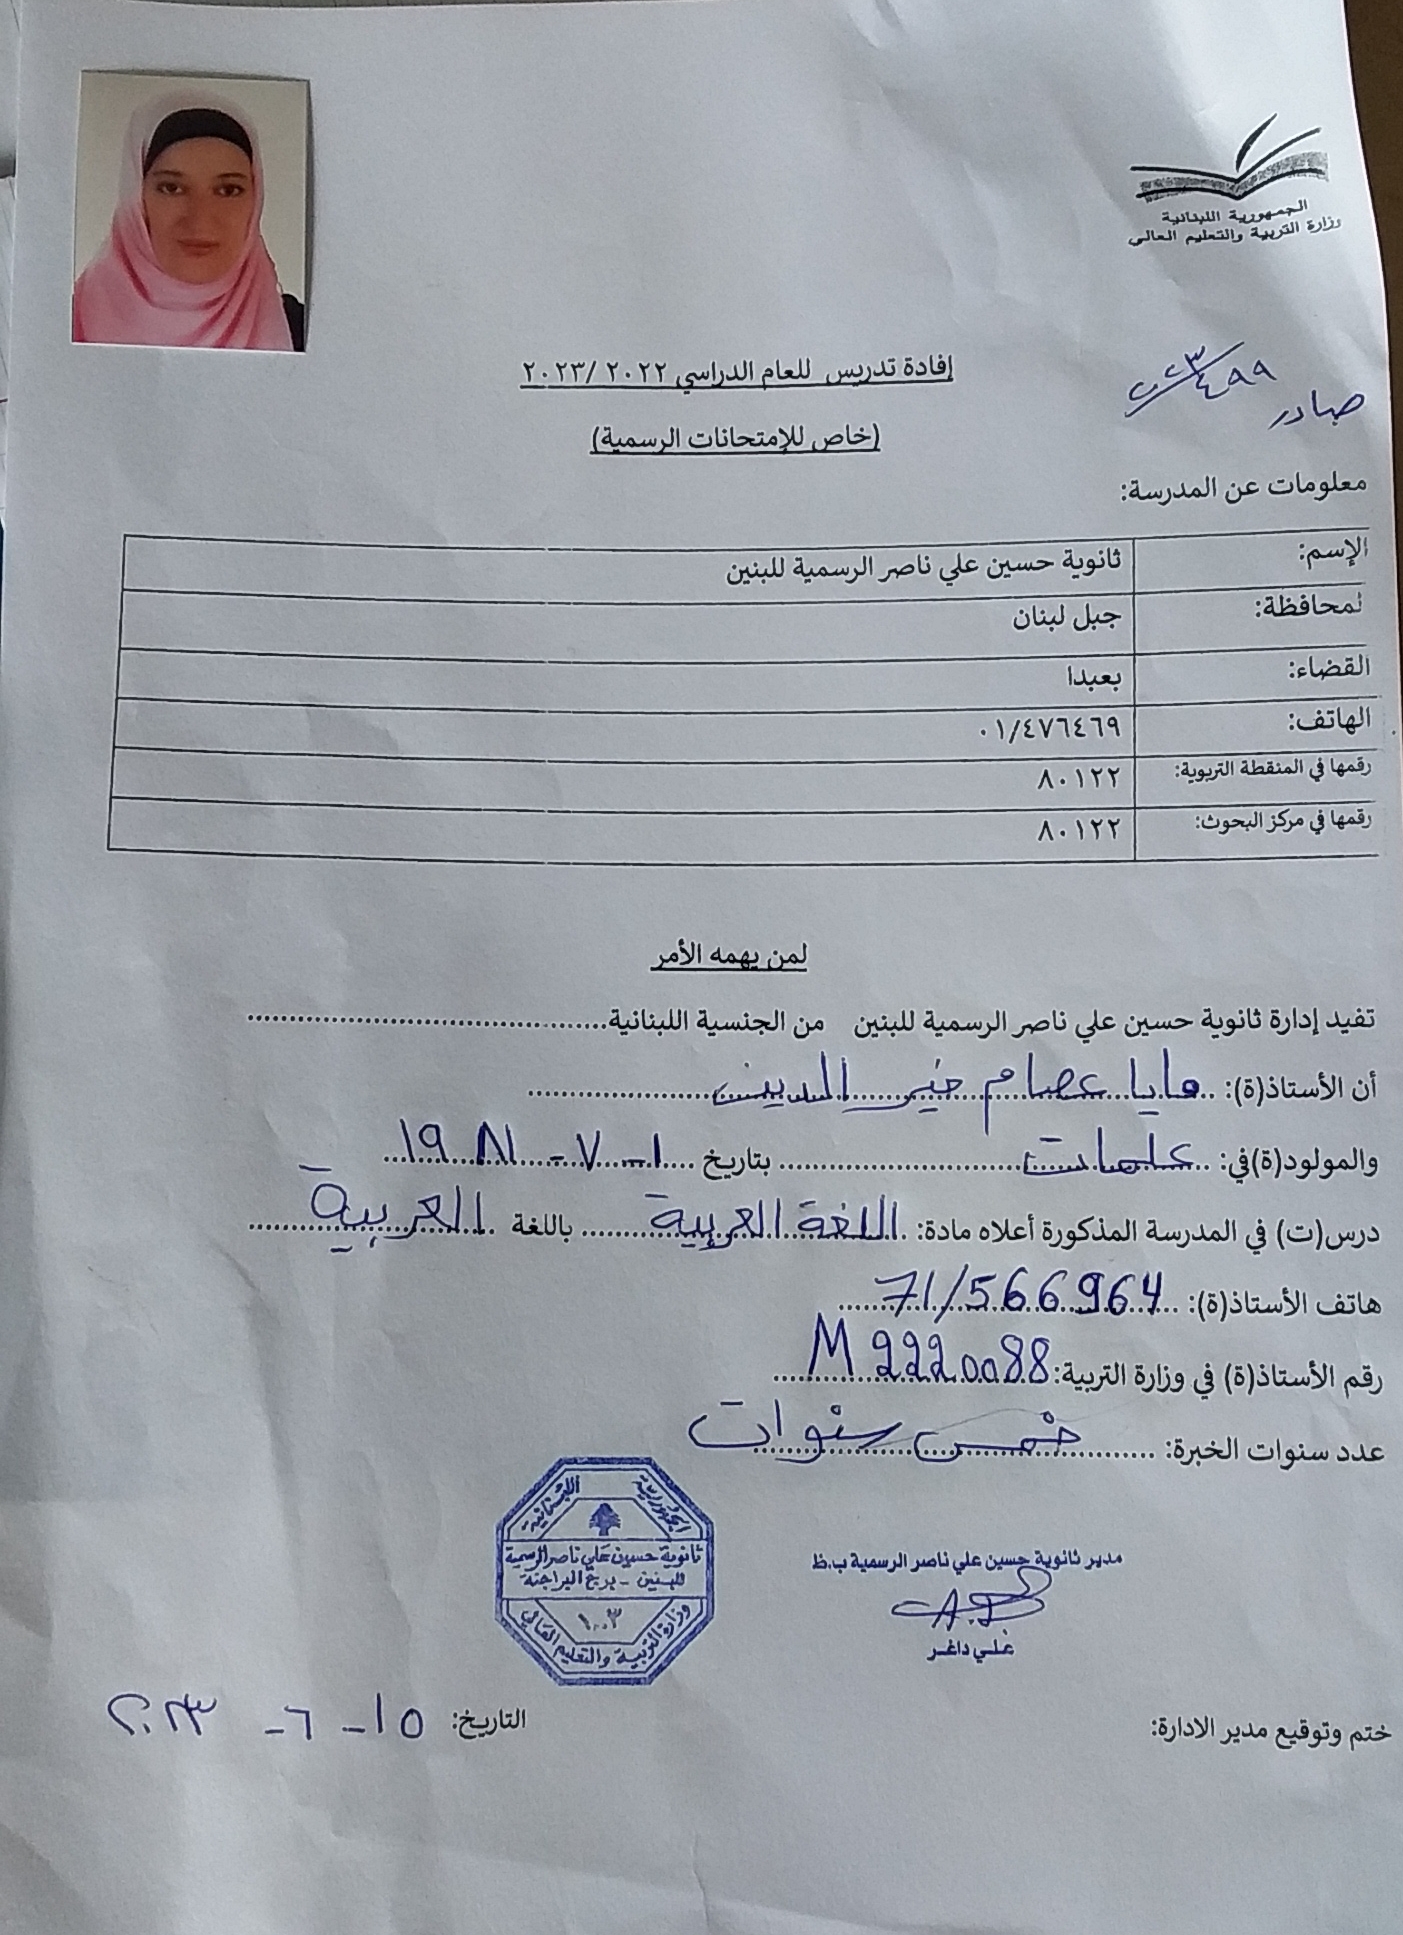 الجمهورية اللبنانية
وزارة التربية والتعليم العالي
صادر ٤٩٩
إفادة تدريس للعام الدراسي ٢٠٢٢ /٢٠٢٣
(خاص للإمتحانات الرسمية)
معلومات عن المدرسة:
الإسم: ثانوية حسين علي ناصر الرسمية للبنين
لمحافظة: جبل لبنان
القضاء: بعبدا
الهاتف: ٠١/٤٧٦٤٦٩
رقمها في المنقطة التربوية: ٨٠١٢٢
رقمها في مركز البحوث: ٨٠١٢٢
لمن يهمه الأمر
تفيد إدارة ثانوية حسين علي ناصر الرسمية للبنين من الجنسية اللبنانية
أن الأستاذ(ة): مايا عصام خير الدين
والمولود(ة)في: علمات بتاريخ ١-٧-١٩٨١
درس(ت) في المدرسة المذكورة أعلاه مادة: اللغة العربية باللغة العربية
هاتف الأستاذ(ة): 71/566964
رقم الأستاذ(ة) في وزارة التربية: M2220088
عدد سنوات الخبرة: خمس سنوات
الجمهورية اللبنانية
ثانوية حسين علي ناصر الرسمية
للبنين - برج البراجنة
١٠٠٣
وزارة التربية والتعليم العالي
مدير ثانوية حسين علي ناصر الرسمية ب.ظ
علي داغر
التاريخ: ١٥-٦-٢٠٢٣
ختم وتوقيع مدير الادارة: